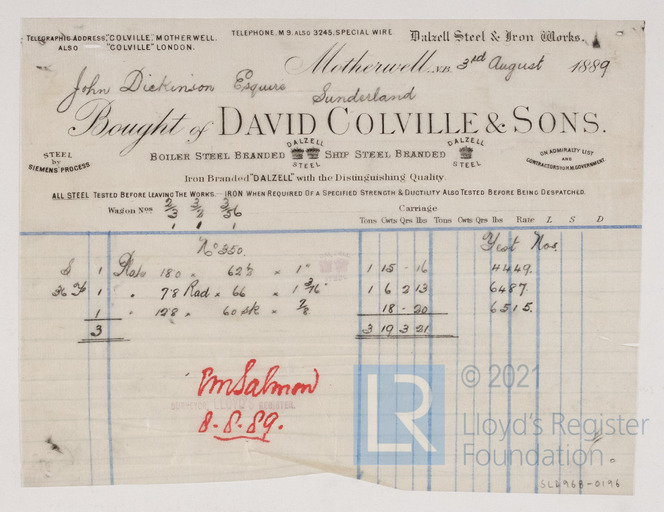 TELEGRAPHIC ADDRESS, "COLVILLE", MOTHERWELL.
ALSO "COLVILLE" LONDON.
TELEPHONE, M 9. ALSO 3245, SPECIAL WIRE
Dalzell Steel & Iron Works.
Motherwell, N.B. 3rd August 1889
John Dickinson Esquire
Sunderland
Bought of DAVID COLVILLE & SONS.
STEEL by SIEMENS' PROCESS
BOILER STEEL BRANDED DALZELL STEEL SHIP STEEL BRANDED DALZELL STEEL
ON ADMIRALTY LIST AND CONTRACTORS FOR H.M. GOVERNMENT.
Iron Branded "DALZELL" with the Distinguishing Quality.
ALL STEEL TESTED BEFORE LEAVING THE WORKS.—IRON WHEN REQUIRED OF A SPECIFIED STRENGTH & DUCTILITY ALSO TESTED BEFORE BEING DESPATCHED.
Wagon Nos
Carriage
Tons Cwts Qrs lbs Tons Cwts Qrs lbs Rate L S D
1 1 1
No 350.
Test Nos.
1 Plate 18.0 × 62½ × 1" 1 15 - 16 4449.
1 " 7.8 Rad × 66 × 1 3/16 1 6 2 13 6487.
1 " 12.8 × 60 × 7/8 18 - 20 6515.
3 3 19 3 21
PmSalmon
8-8-89.
LR © 2021
Lloyd's Register
Foundation
SLD968-0196